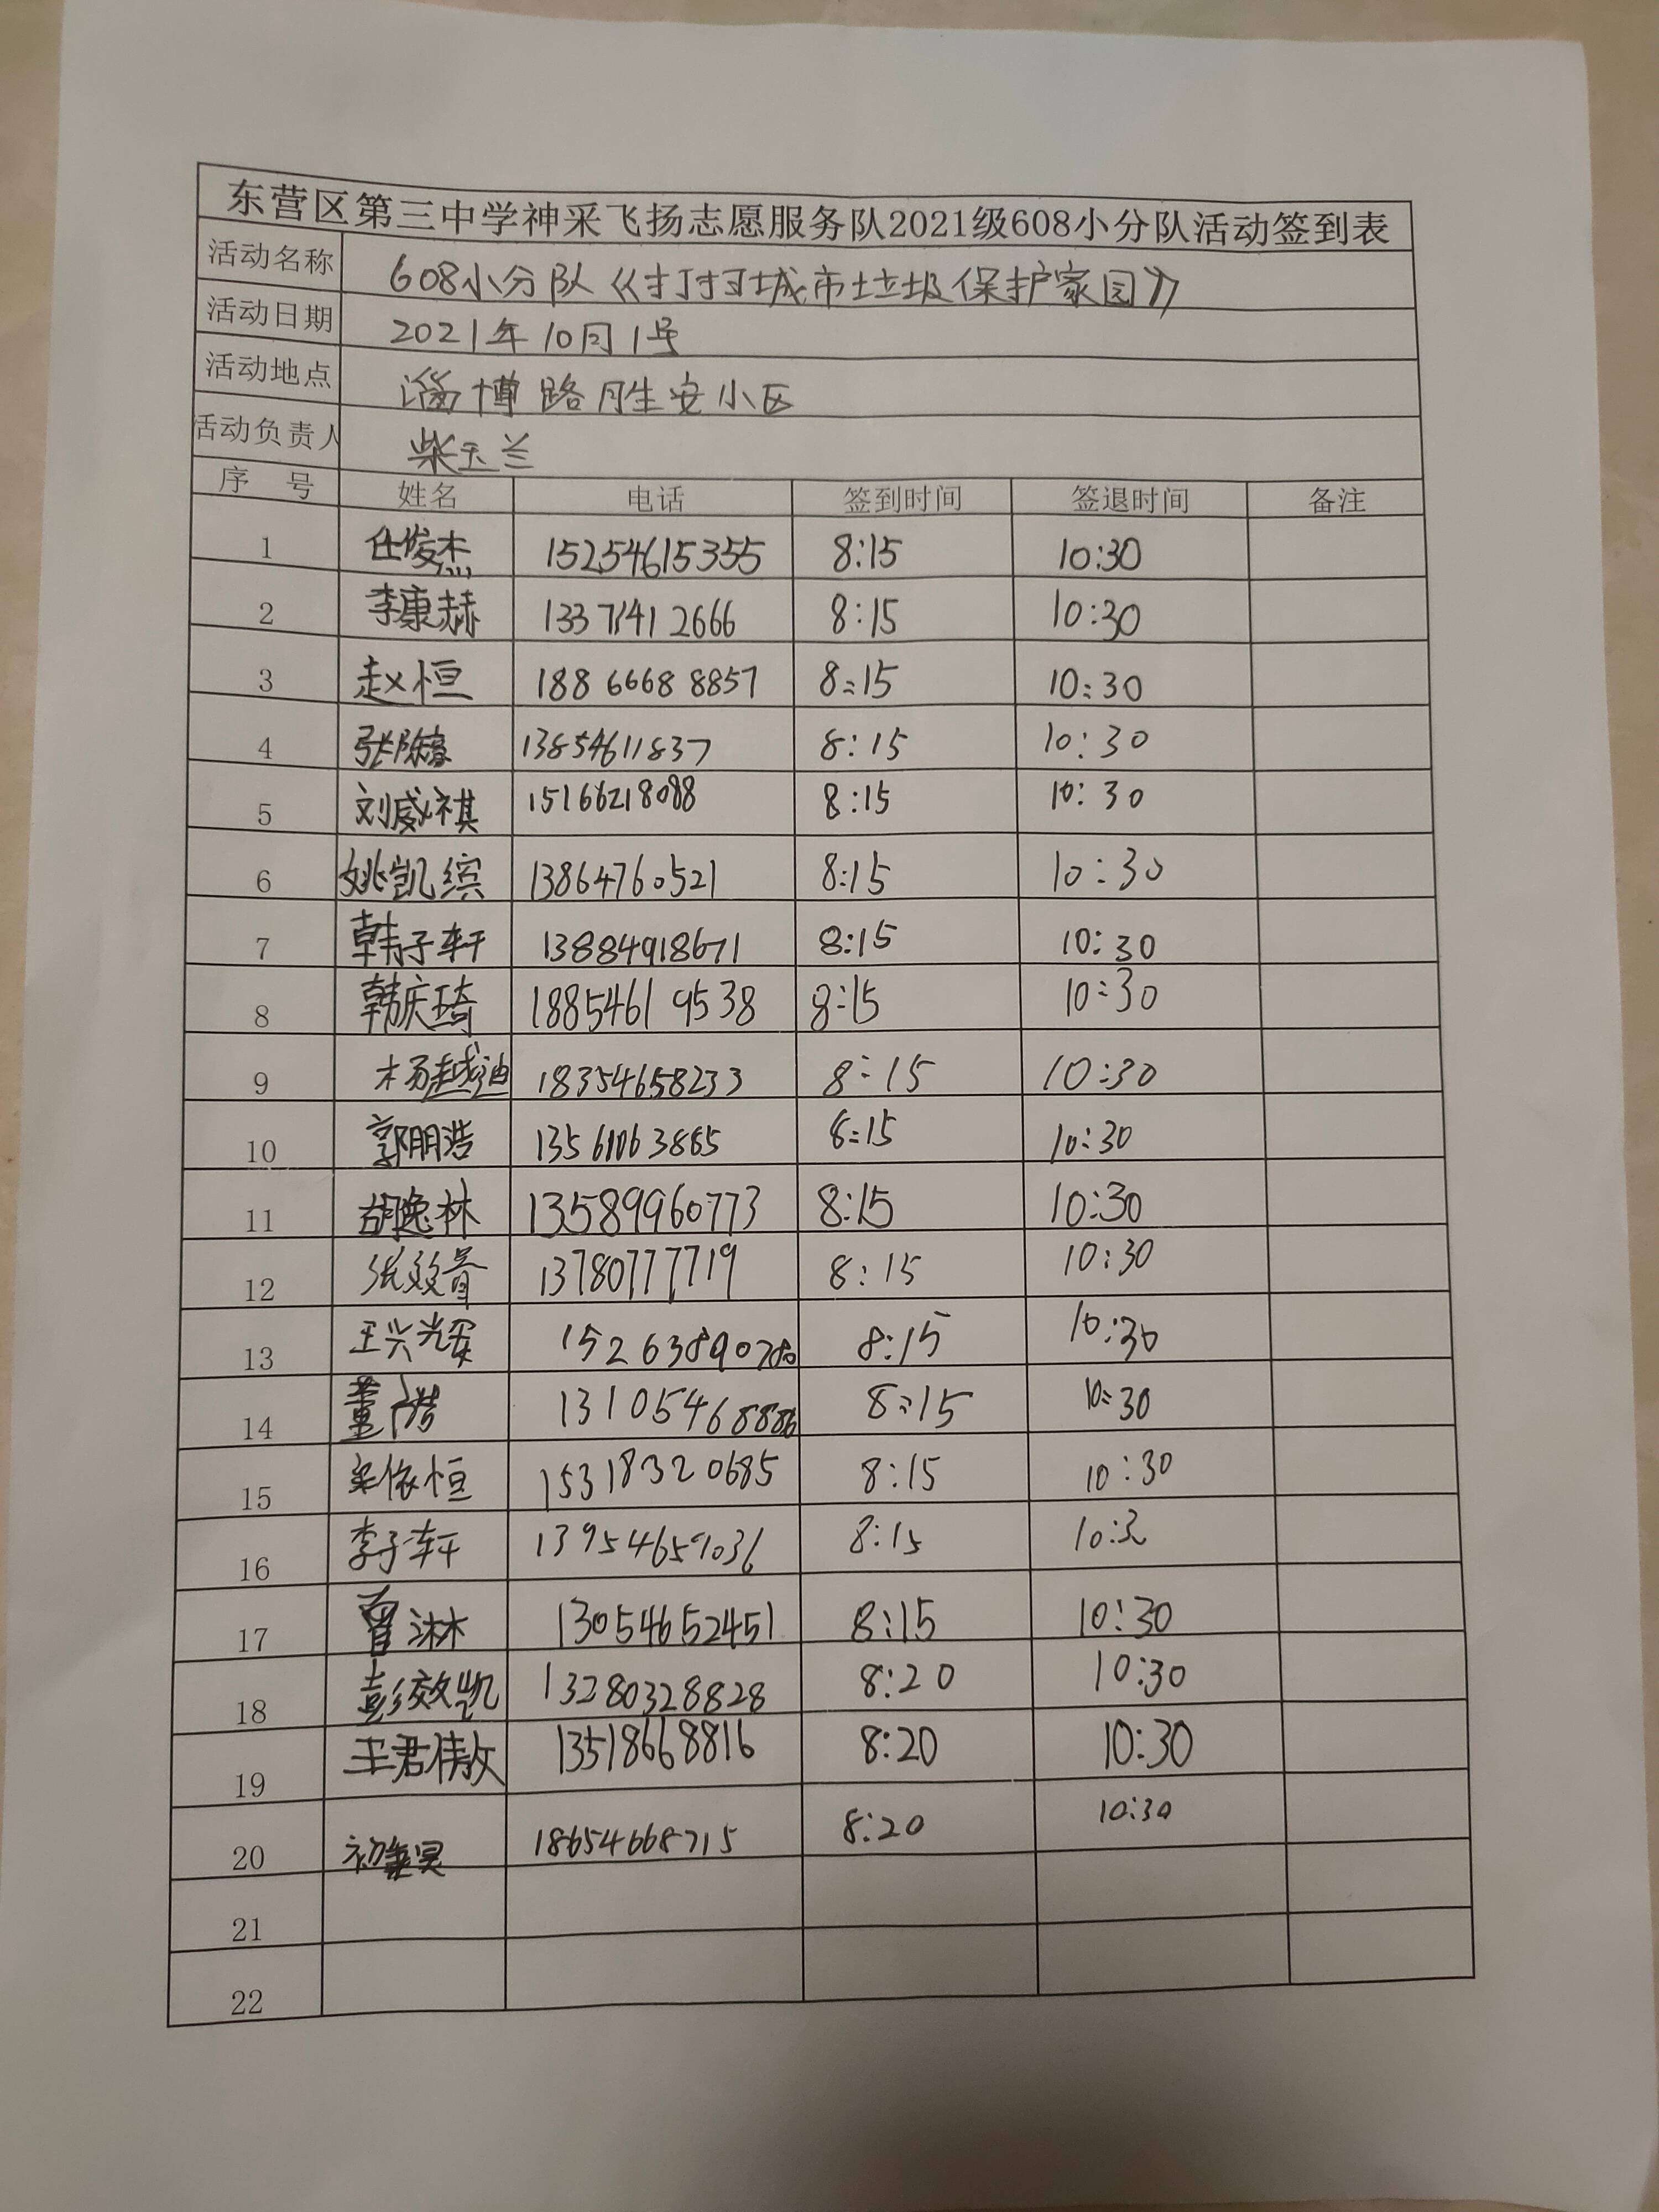 东营区第三中学神采飞扬志愿服务队2021级608小分队活动签到表
活动名称 608小分队《打扫城市垃圾保护家园》
活动日期 2021年10月1号
活动地点 淄博路胜安小区
活动负责人 柴玉兰
序 号 姓名 电话 签到时间 签退时间 备注
1 任俊杰 15254615355 8:15 10:30
2 李康赫 13371412666 8:15 10:30
3 赵恒 18866688857 8:15 10:30
4 13854611837 8:15 10:30
5 刘威祺 15166218088 8:15 10:30
6 姚凯缤 13864760521 8:15 10:30
7 韩子轩 13884918671 8:15 10:30
8 韩庆琦 18854619538 8:15 10:30
9 杨越迪 18354658233 8:15 10:30
10 郭朋浩 13561063885 8:15 10:30
11 胡逸林 13589960773 8:15 10:30
12 13780777719 8:15 10:30
13 王兴光 8:15 10:30
14 董 8:15 10:30
15 梁依恒 15318320685 8:15 10:30
16 李子轩 13954659036 8:15 10:3
17 曾沐林 13054652451 8:15 10:30
18 彭效凯 13280328828 8:20 10:30
19 王君倩 13518668816 8:20 10:30
20 18654668715 8:20 10:30
21
22